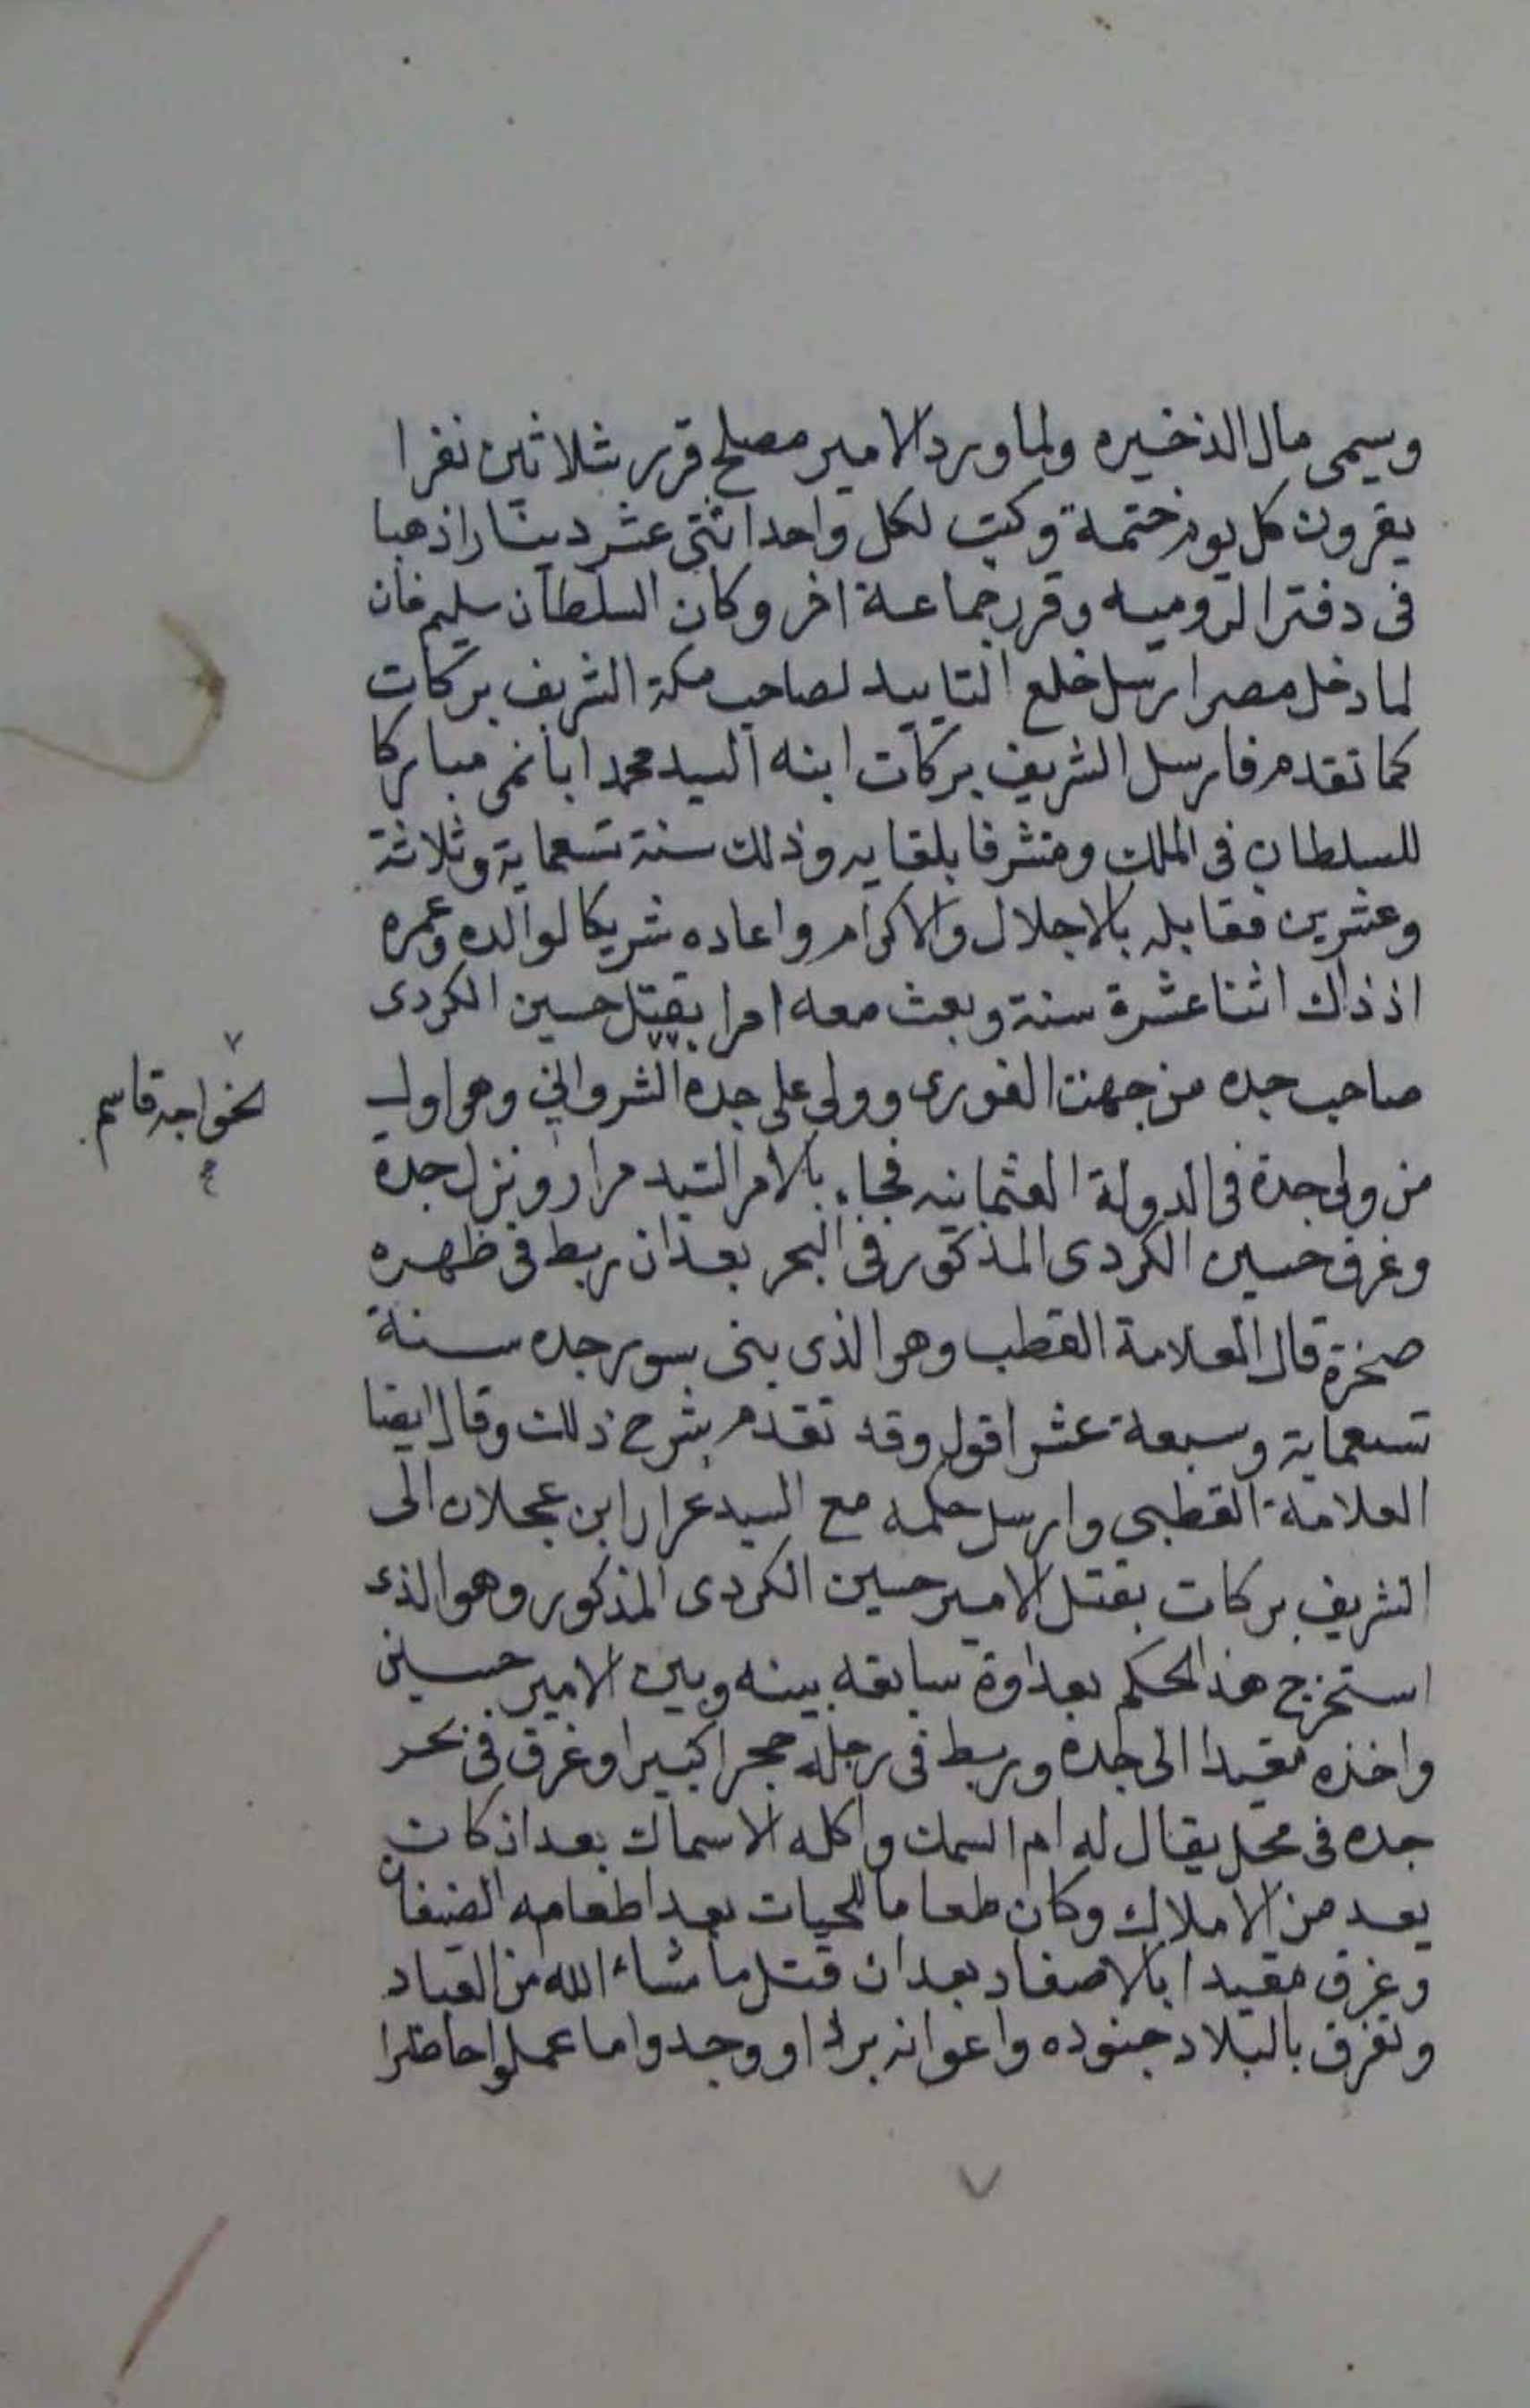 وسيمى مال الذخيره ولما ورد الامير مصلح قرر ثلاثين نفرا
يقرون كل يوم ختمة وكتب لكل واحد اثنتى عشر دينارا ذهبا
فى دفتر الروميه وقرر جماعة اخر وكان السلطان سليم خان
لما دخل مصر ارسل خلع التاييد لصاحب مكة الشريف بركات
كما تقدم فارسل الشريف بركات ابنه السيد محمد ابا نمى مباركا
للسلطان فى الملك ومتشرفا بلقايه وذلك سنة تسعماية وثلاثة
وعشرين فقابله بالاجلال والاكرام واعاده شريكا لوالده وعمره
اذ ذاك اثنا عشرة سنة وبعث معه امرا بقتل حسين الكردى
صاحب جده من جهت الغورى وولى على جدة الشروانى وهو اول
من ولى جدة فى الدولة العثمانيه فجاء بالامر السيد مرار ونزل جدة
وغرق حسين الكردى المذكور فى البحر بعد ان ربط فى ظهره
صخرة قال العلامة القطب وهو الذى بنى سور جده سنة
تسعماية وسبعة عشر اقول وقد تقدم شرح ذلك وقال ايضا
العلامة القطبى وارسل حكمه مع السيد عرار ابن عجلان الى
الشريف بركات بقتل الامير حسين الكردى المذكور وهو الذى
استخرج هذا الحكم بعداوة سابقه بينه وبين الامير حسين
واخذه مقيدا الى جدة وربط فى رجله حجرا كبيرا وغرق فى بحر
جده فى محل يقال له ام السمك واكله الاسماك بعد ان كان
يعد من الاملاك وكان طعاما للحيات بعد اطعامه الضيفان
وغرق مقيدا بالاصفاد بعد ان قتل ما شاء الله من العباد
وتفرق بالبلاد جنوده واعوانه برا او ووجدوا ما عملوا حاضرا
لخواجه قاسم